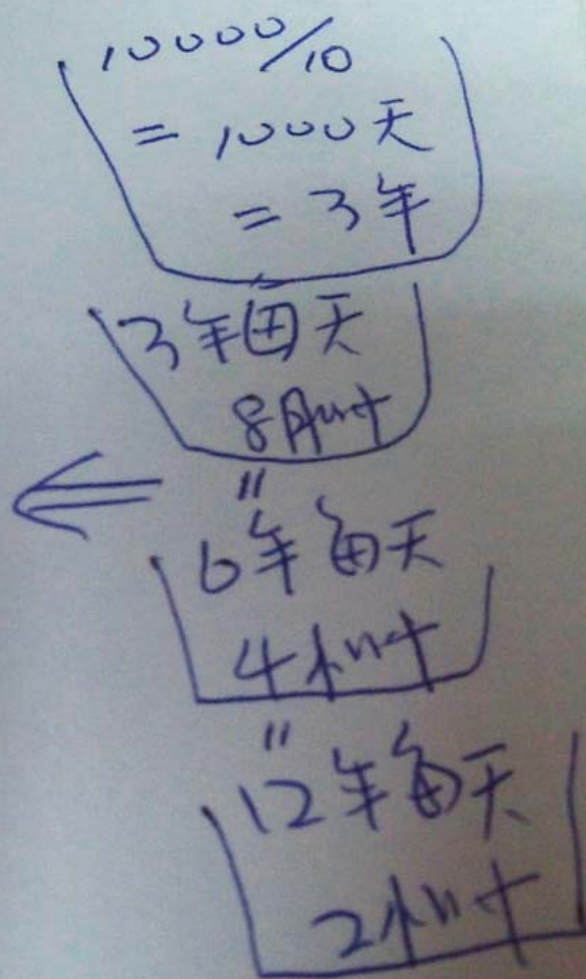 10000/10
= 1000天
= 3年
3年每天
8小时
"
6年每天
4小时
"
12年每天
2小时